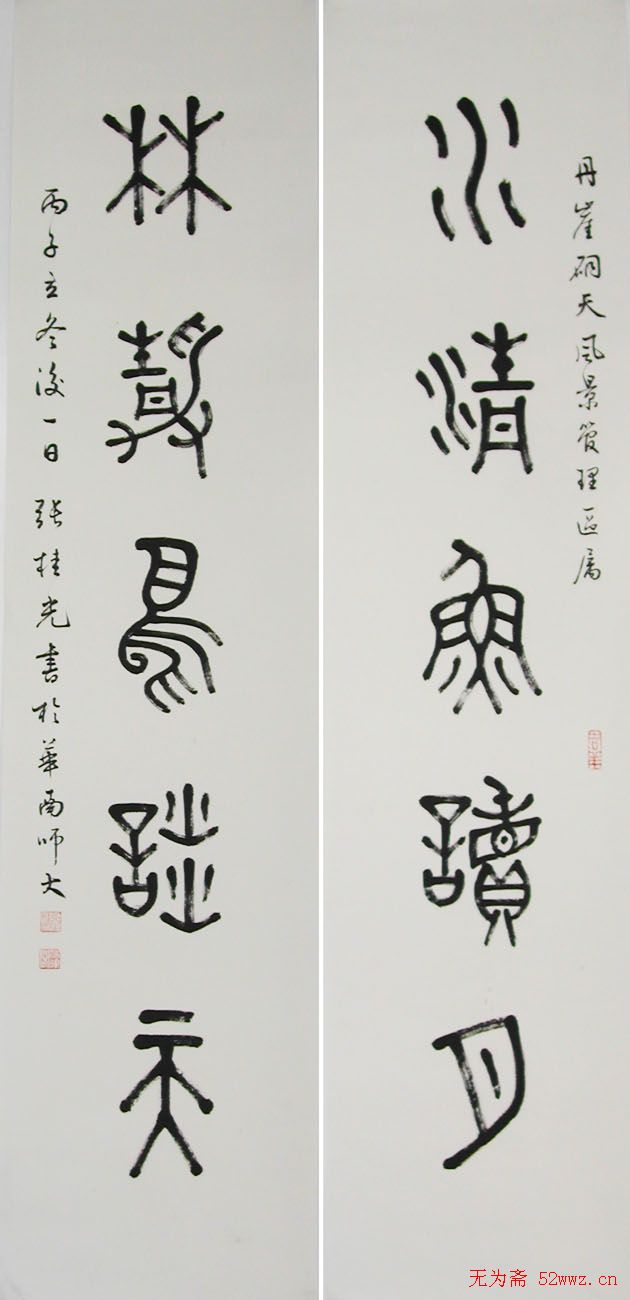 丹崖硐天風景管理區属
水清魚讀月
林靜鳥談天
丙子立冬後一日 張桂光書於華南師大
无为斋 52wwz.cn